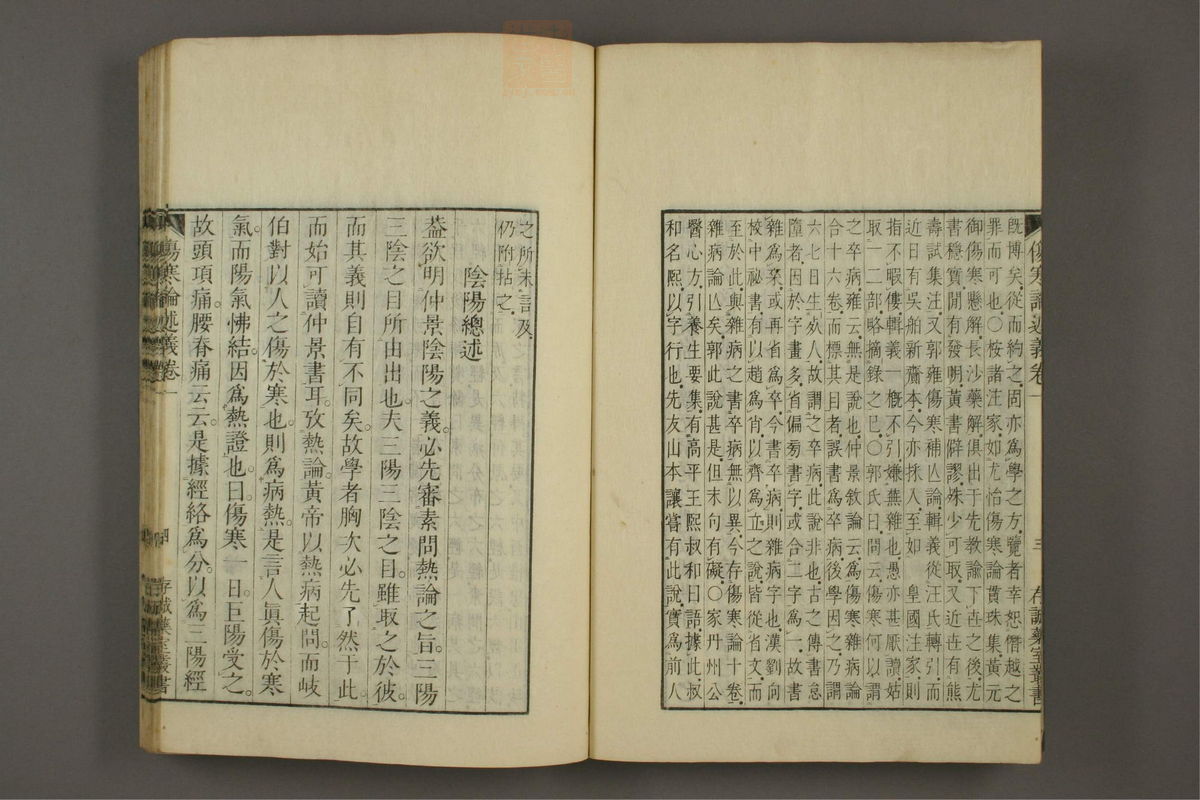 傷寒論述義卷一 三 存誠藥室叢書
既博矣從而約之固亦爲學之方覽者幸恕僭越之
罪而可也○桉諸注家如尤怡傷寒論貫珠集黃元
御傷寒懸解長沙藥解俱出于先教諭下世之後尤
書穩實間有發明黃書僻謬殊少可取又近世有熊
壽試集注又郭雍傷寒補亾論輯義從汪氏轉引而
近日有吳舶新齎本今亦採入至如 皇國注家則
指不暇僂輯義一槪不引嫌蕪雜也愚亦甚厭讀姑
取一二部略摘錄之已○郭氏曰問云傷寒何以謂
之卒病雍云無是說也仲景敘論云爲傷寒雜病論
合十六卷而標其目者誤書爲卒病後學因之乃謂
六七日生死人故謂之卒病此說非也古之傳書怠
墮者因於字畫多省偏旁書字或合二字爲一故書
雜爲桒或再省爲卒今書卒病則雜病字也漢劉向
校中祕書有以趙爲肖以齊爲立之說皆從省文而
至於此與雜病之書卒病無以異今存傷寒論十卷
雜病論亾矣郭此說甚是但末句有礙○家丹州公
醫心方引養生要集有高平王熙叔和曰語據此叔
和名熙以字行也先友山本讓嘗有此說實爲前人
之所未言及
仍附拈之
陰陽總述
葢欲明仲景陰陽之義必先審素問熱論之旨三陽
三陰之目所由出也夫三陽三陰之目雖取之於彼
而其義則自有不同矣故學者胸次必先了然于此
而始可讀仲景書耳攷熱論黃帝以熱病起問而岐
伯對以人之傷於寒也則爲病熱是言人眞傷於寒
氣而陽氣怫結因爲熱證也曰傷寒一日巨陽受之
故頭項痛腰脊痛云云是據經絡爲分以爲三陽經
傷寒論述義卷一 四 存誠藥室叢書